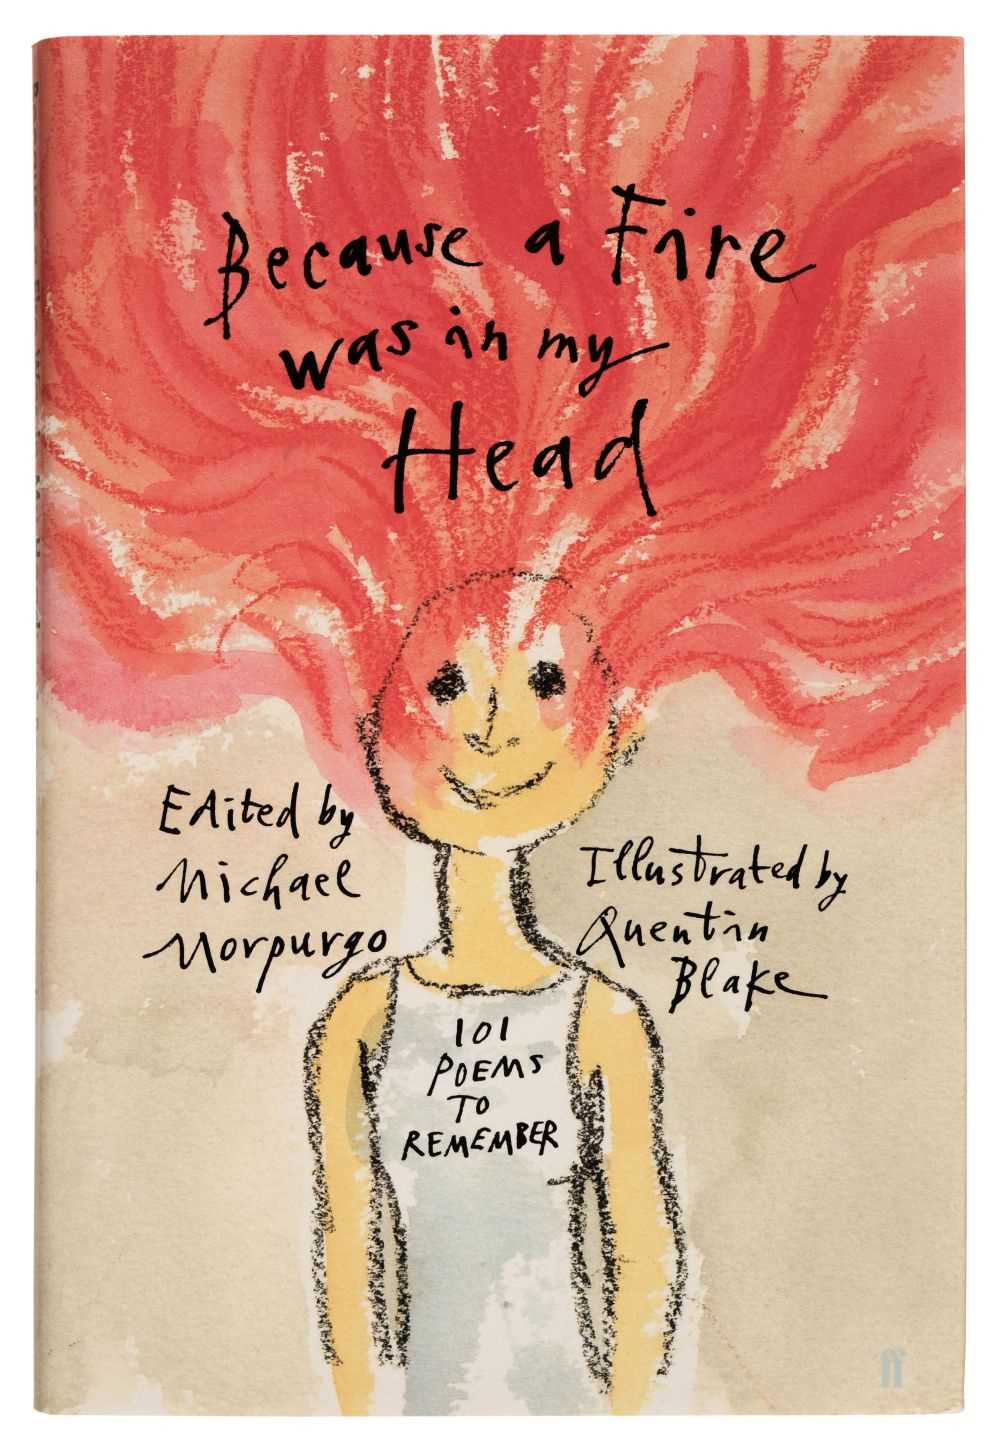 Because a Fire
was in my
Head
Edited by
Michael
Morpurgo
Illustrated by
Quentin
Blake
101
POEMS
TO
REMEMBER
ff